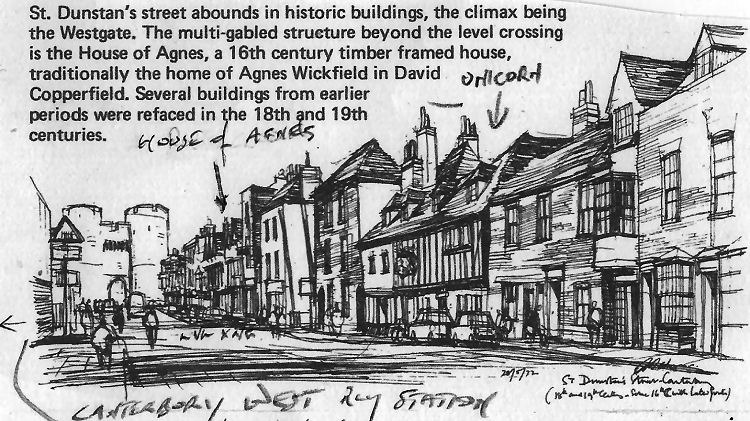 St. Dunstan's street abounds in historic buildings, the climax being
the Westgate. The multi-gabled structure beyond the level crossing
is the House of Agnes, a 16th century timber framed house,
traditionally the home of Agnes Wickfield in David
Copperfield. Several buildings from earlier
periods were refaced in the 18th and 19th
centuries.
UNICORN
HOUSE of AGNES
LVL XNG
20/5/72
St Dunstan's Street Canterbury
(18th and 19th Century - Some 16th C with later fronts)
CANTERBURY WEST RLY STATION